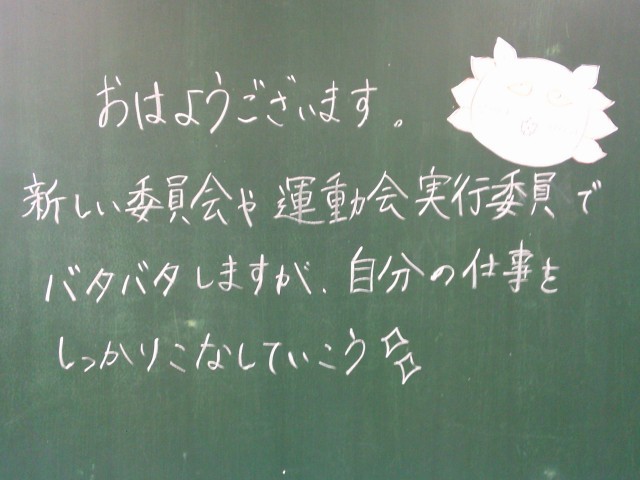 おはようございます。
新しい委員会や運動会実行委員で
バタバタしますが、自分の仕事を
しっかりこなしていこう